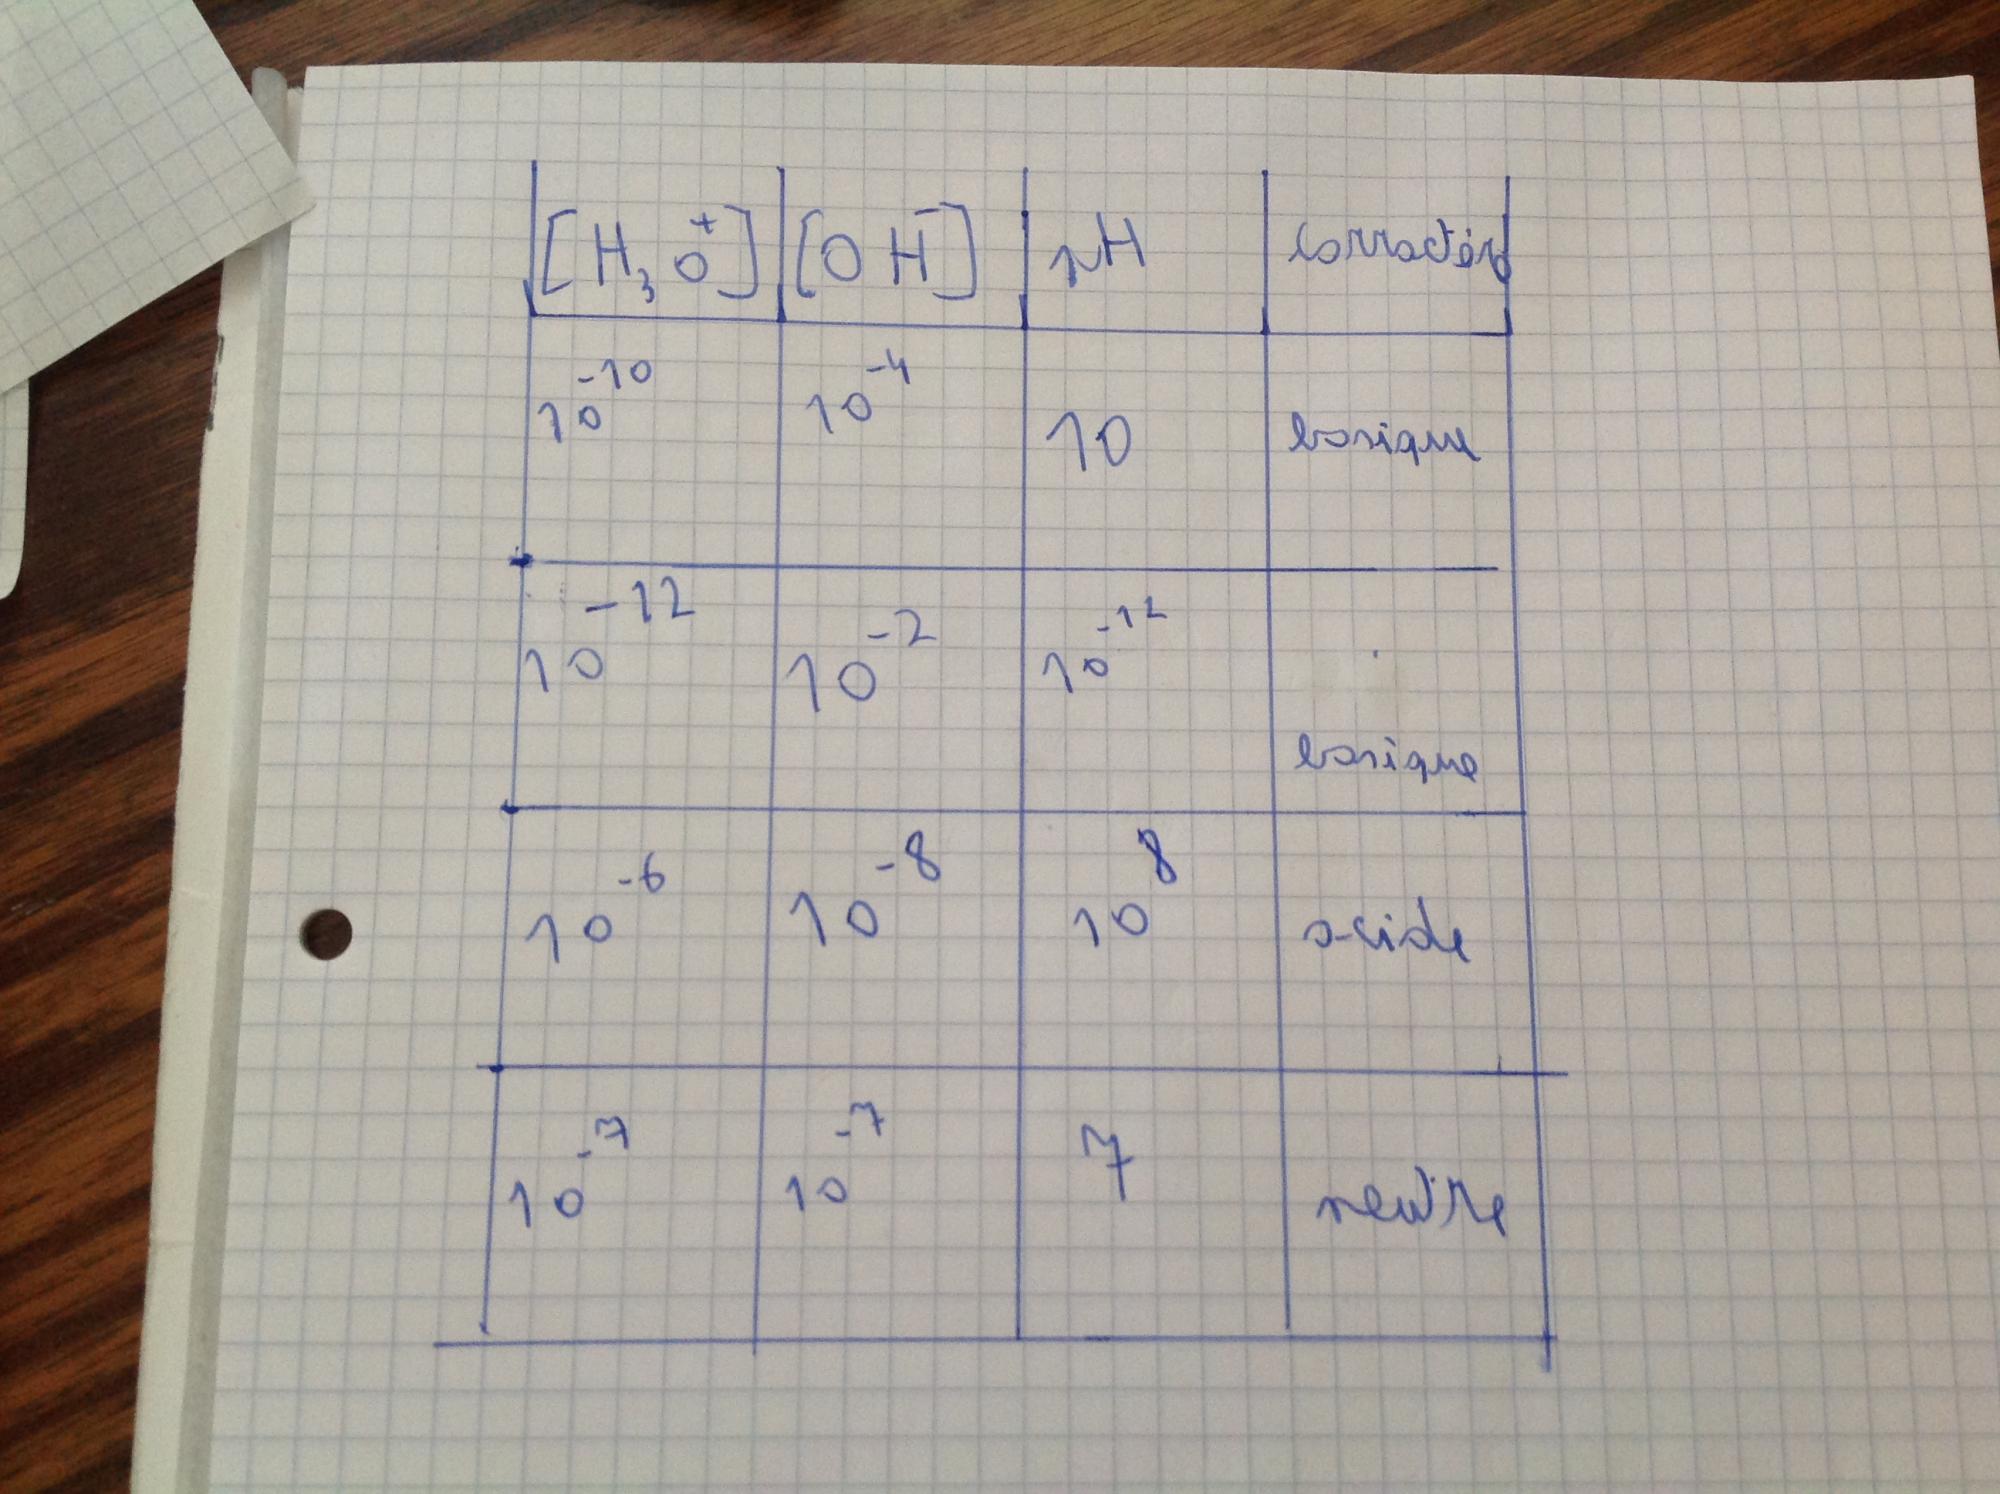 [H₃O⁺] [OH⁻] pH
10⁻¹⁰ 10⁻⁴ 10 basique
10⁻¹² 10⁻² 10⁻¹² basique
10⁻⁶ 10⁻⁸ 10⁸ acide
10⁻⁷ 10⁻⁷ 7 neutre